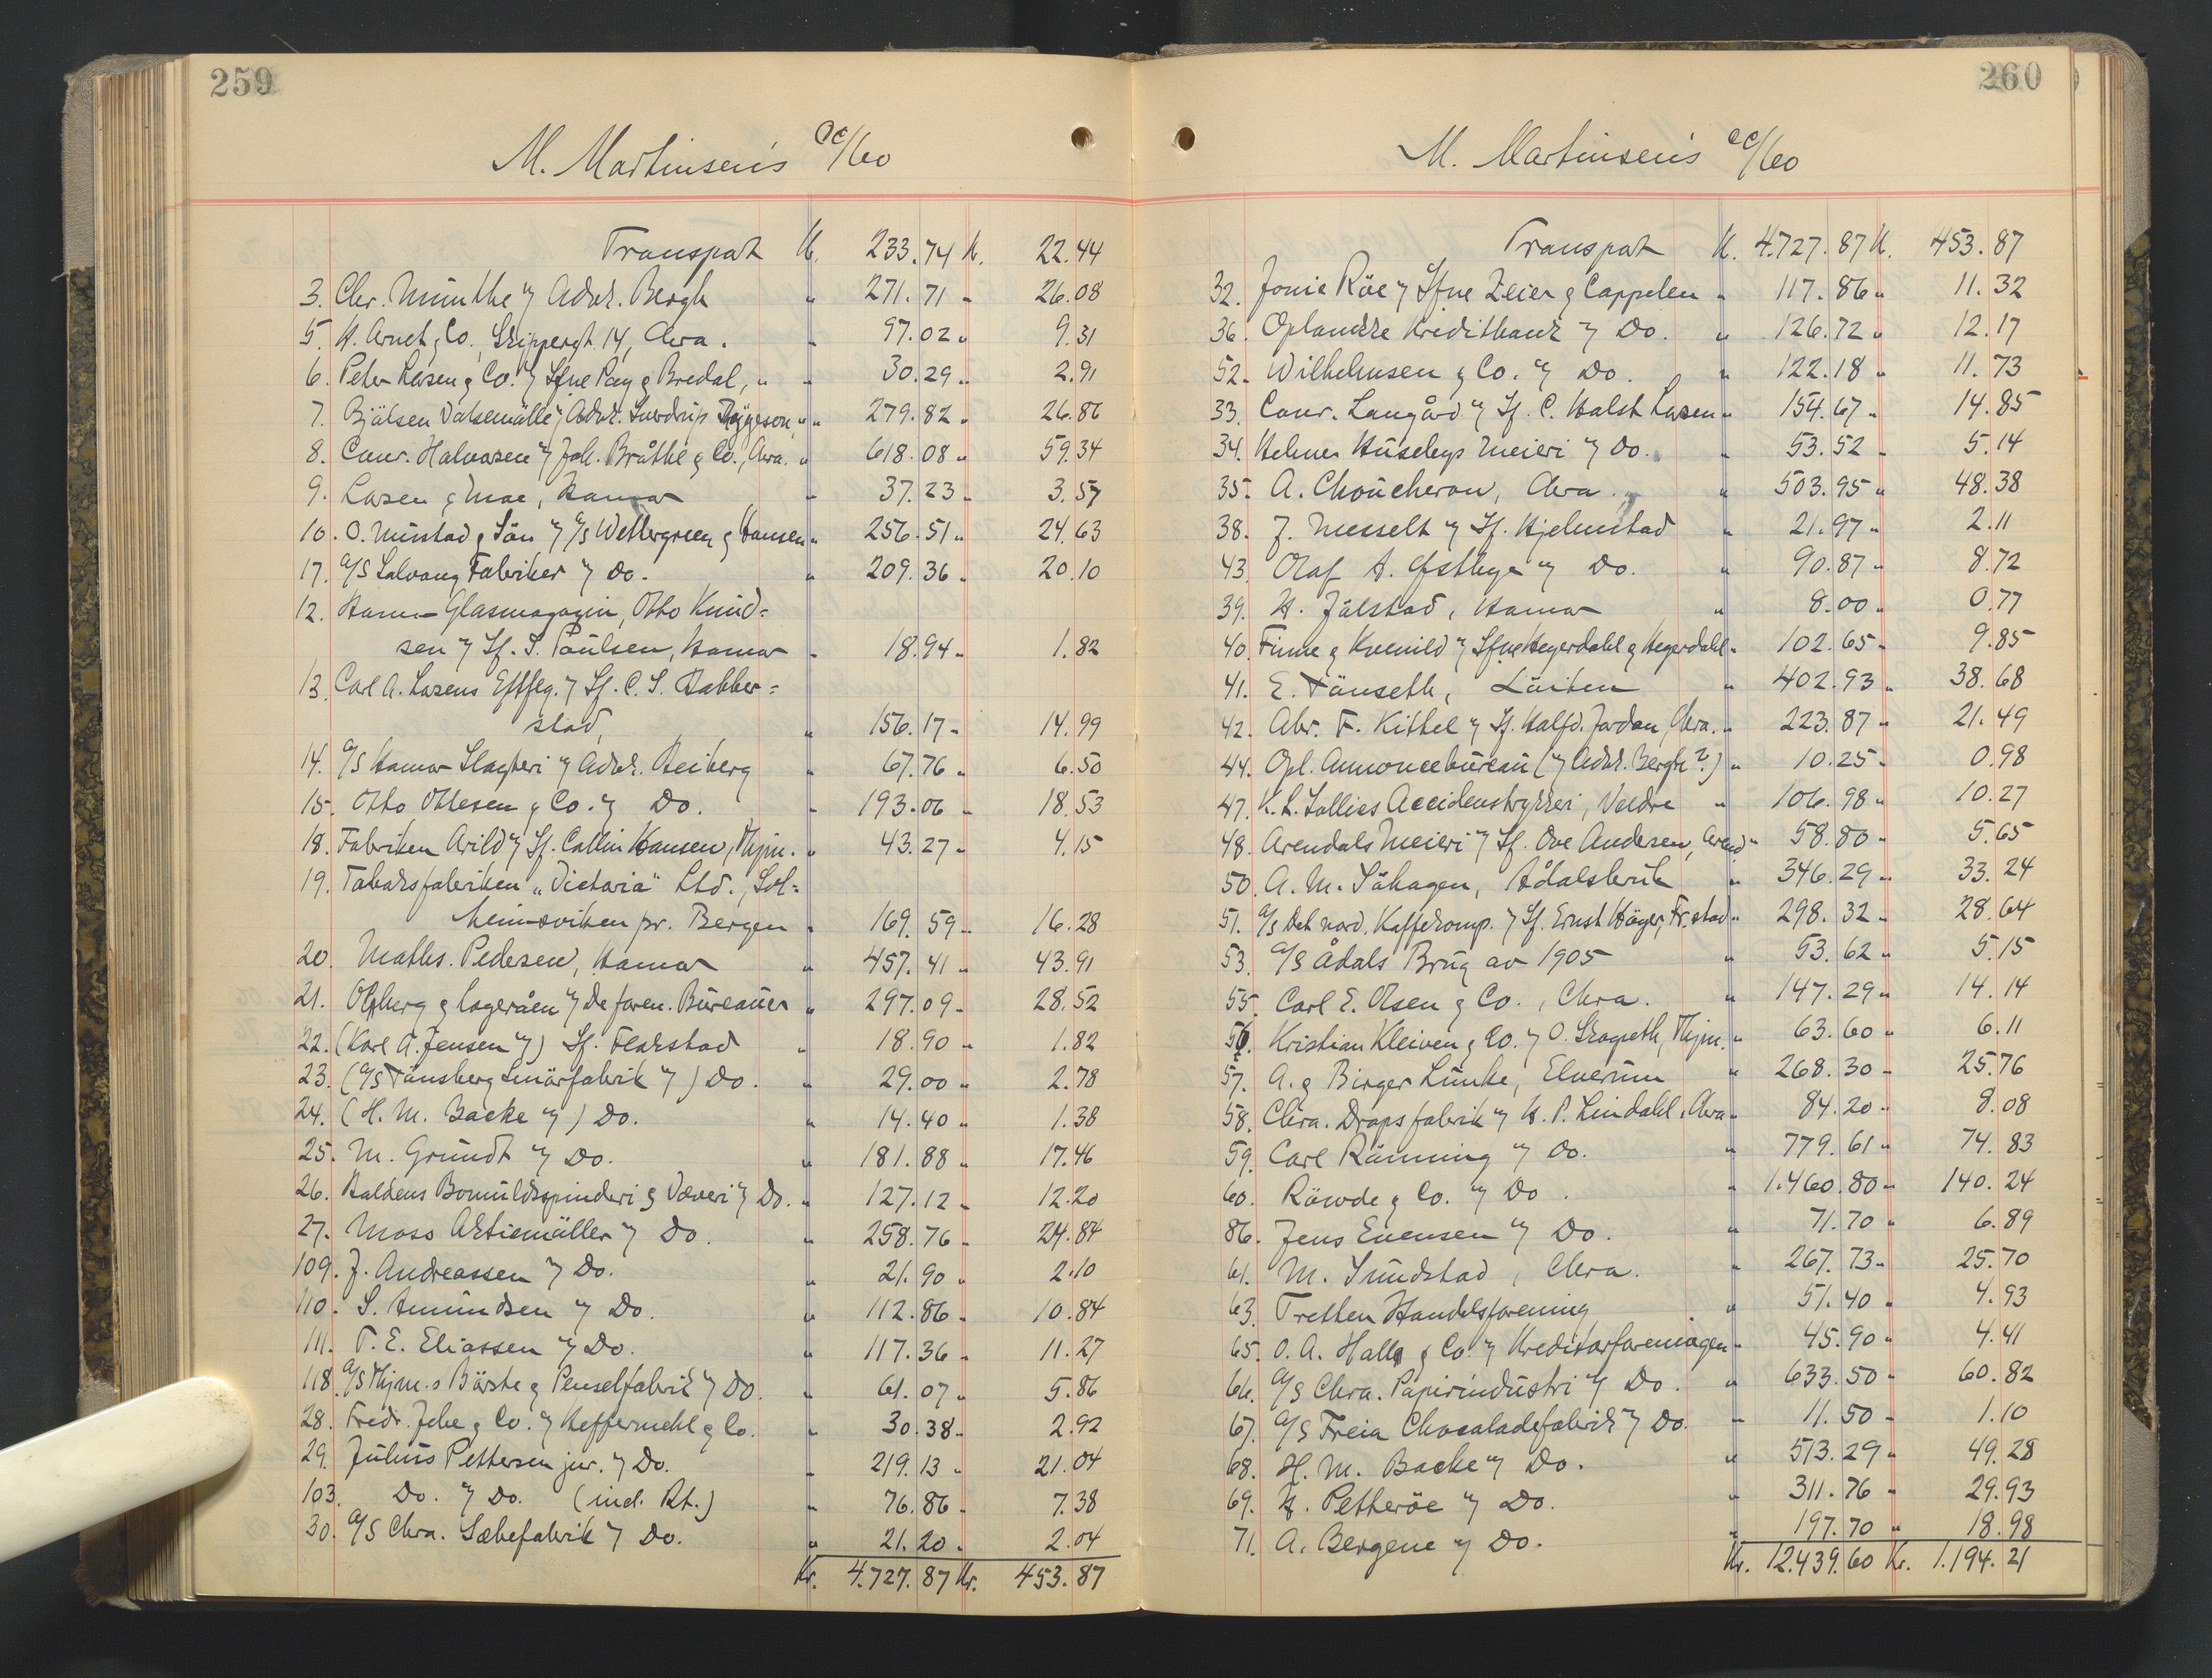 259
M. Martinsen's ac/Co
Transport Kr. 233.74 Kr. 22.44
3. Chr. Munthe v/ Advk. Bergh " 271.71 " 26.08
5. H. Arnet & Co., Skippergt. 14, Chra. " 97.02 " 9.31
6. Peter Larsen & Co. v/ Sfne Pay & Bredal, " " 30.29 " 2.91
7. Bjølsen Valsemølle v/ Advk. Sverdrup " " 279.82 " 26.86
8. Conr. Halvorsen v/ Joh. Bråthe & Co., Chra. " 618.08 " 59.34
9. Larsen & Moe, Hamar " 37.23 " 3.57
10. O. Mustad & Søn v/ A/S Wettergreen & Hansen " 256.51 " 24.63
17. A/S Lalvang Fabriker v/ Do. " 209.36 " 20.10
12. Hamar Glasmagazin, Otto Knud=
sen v/ Sf. S. Paulsen, Hamar " 18.94 " 1.82
13. Carl A. Larsens Efftflg. v/ Sf. C. S. Rabber=
stad, " 156.17 " 14.99
14. A/S Hamar Slagteri v/ Advk. Heiberg " 67.76 " 6.50
15. Otto Ottesen & Co. v/ Do. " 193.06 " 18.53
18. Fabriken Arild v/ Sf. Collin Hansen, Thjm. " 43.27 " 4.15
19. Tobaksfabriken "Victoria" Ltd., Sol=
heimsviken pr. Bergen " 169.59 " 16.28
20. Maths. Pedersen, Hamar " 457.41 " 43.91
21. Olsberg & Lageråen v/ De foren. Bureauer " 297.09 " 28.52
22. (Karl A. Jensen v/) Sf. Flakstad " 18.90 " 1.82
23. (A/S Tønsberg Smørfabrik v/) Do. " 29.00 " 2.78
24. (H. M. Backe v/) Do. " 14.40 " 1.38
25. M. Grundt v/ Do. " 181.88 " 17.46
26. Haldens Bomuldsspinderi & Væveri v/ Do. " 127.12 " 12.20
27. Moss Aktiemøller v/ Do. " 258.76 " 24.84
109. J. Andreassen v/ Do. " 21.90 " 2.10
110. S. Amundsen v/ Do. " 112.86 " 10.84
111. T. E. Eliassen v/ Do. " 117.36 " 11.27
118. A/S Thjm.s Børste & Penselfabrik v/ Do. " 61.07 " 5.86
28. Fredr. Jebe & Co. v/ Heffermehl & Co. " 30.38 " 2.92
29. Julius Pettersen jur. v/ Do. " 219.13 " 21.04
103. Do. v/ Do. (incl. Rt.) " 76.86 " 7.38
30. A/S Chra. Sæbefabrik v/ Do. " 21.20 " 2.04
Kr. 4.727.87 Kr. 453.87
260
M. Martinsen's ac/Co
Transport Kr. 4.727.87 Kr. 453.87
32. Jonie Röe v/ Sfne Zeier & Cappelen " 117.86 " 11.32
36. Oplandske Kreditbank v/ Do. " 126.72 " 12.17
52. Wilhelmsen & Co. v/ Do. " 122.18 " 11.73
33. Conr. Langård v/ Sf. C. Holst Larsen " 154.67 " 14.85
34. Helmer Huseby's Meieri v/ Do. " 53.52 " 5.14
35. A. Choucheron, Chra. " 503.95 " 48.38
38. J. Messelt v/ Sf. Hjelmstad " 21.97 " 2.11
43. Olaf A. Østbye v/ Do. " 90.87 " 8.72
39. H. Jølstad, Hamar " 8.00 " 0.77
40. Finne & Kvenild v/ Sfne Heyerdahl & Hegerdahl " 102.65 " 9.85
41. E. Tønseth, Løiten " 402.93 " 38.68
42. Abr. F. Kittel v/ Sf. Halfd. Jordan, Chra. " 223.87 " 21.49
44. Opl. Annoncebureau (v/ Advk. Bergh?) " 10.25 " 0.98
47. K. L. Lollies Accidenstrykkeri, Veldre " 106.98 " 10.27
48. Arendals Meieri v/ Sf. Ove Andersen, Arend. " 58.80 " 5.65
50. A. M. Søhagen, Ådalsbruk " 346.29 " 33.24
51. A/S Det nord. Kaffekomp. v/ Sf. Ernst Höyer, Fr.stad " 298.32 " 28.64
53. A/S Ådals Brug av 1905 " 53.62 " 5.15
55. Carl E. Olsen & Co., Chra. " 147.29 " 14.14
56. Kristian Kleiven & Co. v/ O. Skogseth, Thjm. " 63.60 " 6.11
57. A. & Birger Lunke, Elverum " 268.30 " 25.76
58. Chra. Dropsfabrik v/ H. P. Lindahl, Chra. " 84.20 " 8.08
59. Carl Rønning v/ Do. " 779.61 " 74.83
60. Röwde & Co. v/ Do. " 1.460.80 " 140.24
86. Jens Evensen v/ Do. " 71.70 " 6.89
61. M. Sundstad, Chra. " 267.73 " 25.70
63. Tretten Handelsforening " 51.40 " 4.93
65. O. A. Halls & Co. v/ Kreditorforeningen " 45.90 " 4.41
66. A/S Chra. Papirindustri v/ Do. " 633.50 " 60.82
67. A/S Freia Chocoladefabrik v/ Do. " 11.50 " 1.10
68. H. M. Backe v/ Do. " 513.29 " 49.28
69. H. Petterøe v/ Do. " 311.76 " 29.93
71. A. Bergene v/ Do. " 197.70 " 18.98
Kr. 12.439.60 Kr. 1.194.21